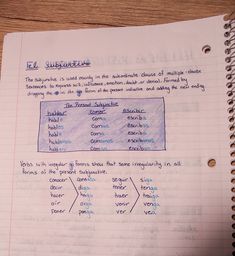 El Subjuntivo
The subjunctive is used mainly in the subordinate clause of multiple-clause
sentences to express will, influence, emotion, doubt, or denial. Formed by
dropping the o in the yo form of the present indicative and adding the new ending
The Present Subjunctive
hablar comer escribir
hable coma escriba
hables comas escribas
hable coma escriba
hablemos comamos escribamos
habléis comáis escribáis
hablen coman escriban
Verbs with irregular yo forms show that same irregularity in all
forms of the present subjunctive.
conocer conozca seguir siga
decir diga tener tenga
hacer haga traer traiga
oír oiga venir venga
poner ponga ver vea